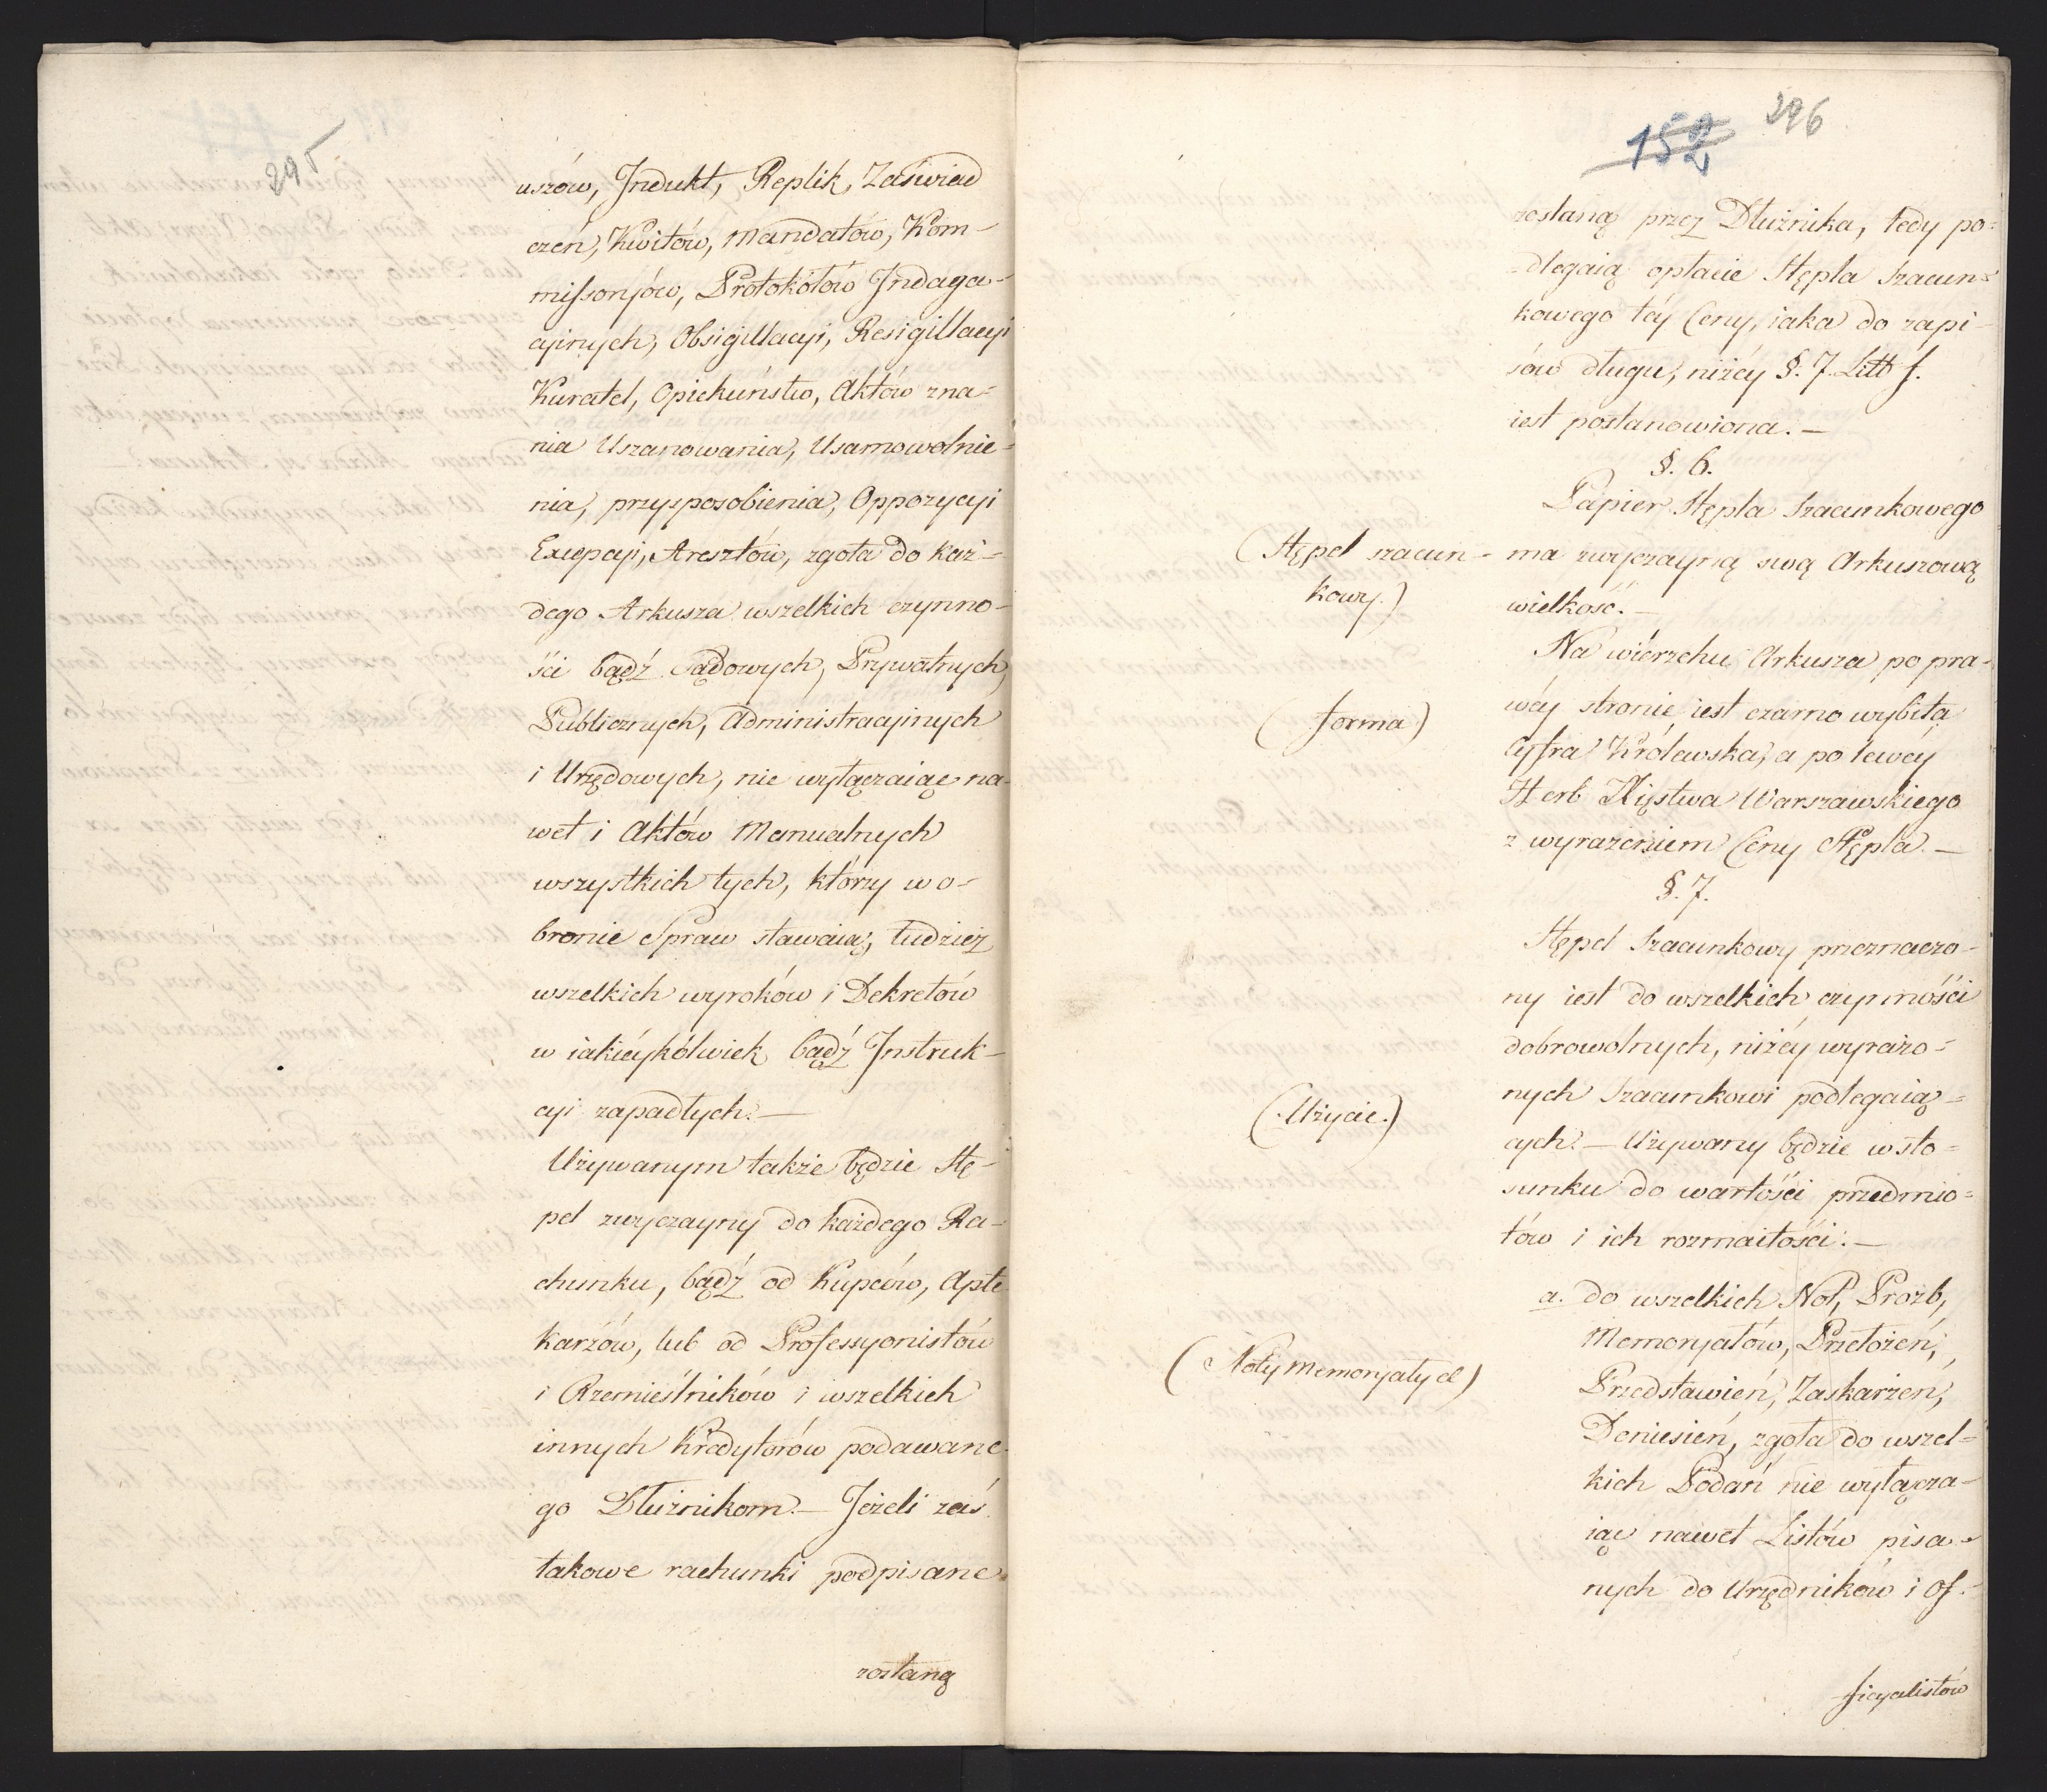 295
uszów, Indukt, Replik, Zaświad
czeń, Kwitów, Mandatów, Kom-
missoryów, Protokółów Indaga-
cyinych, Obsigillacyi, Resigillacyi
Kuratel, Opiekuństw, Aktów zna-
nia Uszanowania, Usamowolnie-
nia, przysposobienia, Oppozycyi
Excepcyi, Aresztów, zgoła do każ-
dego Arkusza wszelkich czynno-
ści bądź Sądowych, Prywatnych,
Publicznych, Administracyinych
i Urzędowych, nie wyłączaiąc na-
wet i Aktów Manualnych
wszystkich tych, którzy w o-
bronie Spraw stawaią, tudzież
wszelkich wyroków i Dekretów
w iakiéykólwiek bądź Instruk-
cyi zapadłych. —
Używanym także będzie Stę-
pel zwyczayny do każdego Ra-
chunku, bądź od Kupców, Apte
karzów, lub od Professyonistów
i Rzemieślników i wszelkich
innych Kredytorów podawane-
go Dłużnikom. — Jeżeli zaś
takowe rachunki podpisane
zostaną
152 296
zostaną przez Dłużnika, tedy po-
dlegaią opłacie Stępla szacun-
kowego téy Ceny, iaka do zapi-
sów długu, niżéy §. 7. Litt f.
iest postanowiona. —
§. 6.
Papier Stępla Szacunkowego
(Stępel szacun- ma zwyczayną swą Arkuszową
kowy.) wielkość. —
Na wiérzchu Arkusza po pra-
(forma) wéy stronie iest czarno wybita
Cyfra Królewska, a po lewéy
Herb Xięstwa Warszawskiego
z wyrażeniem Ceny Stępla. —
§. 7.
Stępel Szacunkowy przeznaczo-
ny iest do wszelkich czynności
dobrowolnych, niżéy wyrażo-
nych Szacunkowi podlegaią-
(Użycie.) cych. — Używany będzie w sto-
sunku do wartości przedmio-
tów i ich rozmaitości. —
a. do wszelkich Not, Prozb,
Memoryałów, Przełożeń,
(Noty Memoryały et) Przedstawień, Zaskarżeń,
Doniesień, zgoła do wszel-
kich Podań nie wyłącza-
iąc nawet Listów pisa-
nych do Urzędników i Of-
ficyalistów